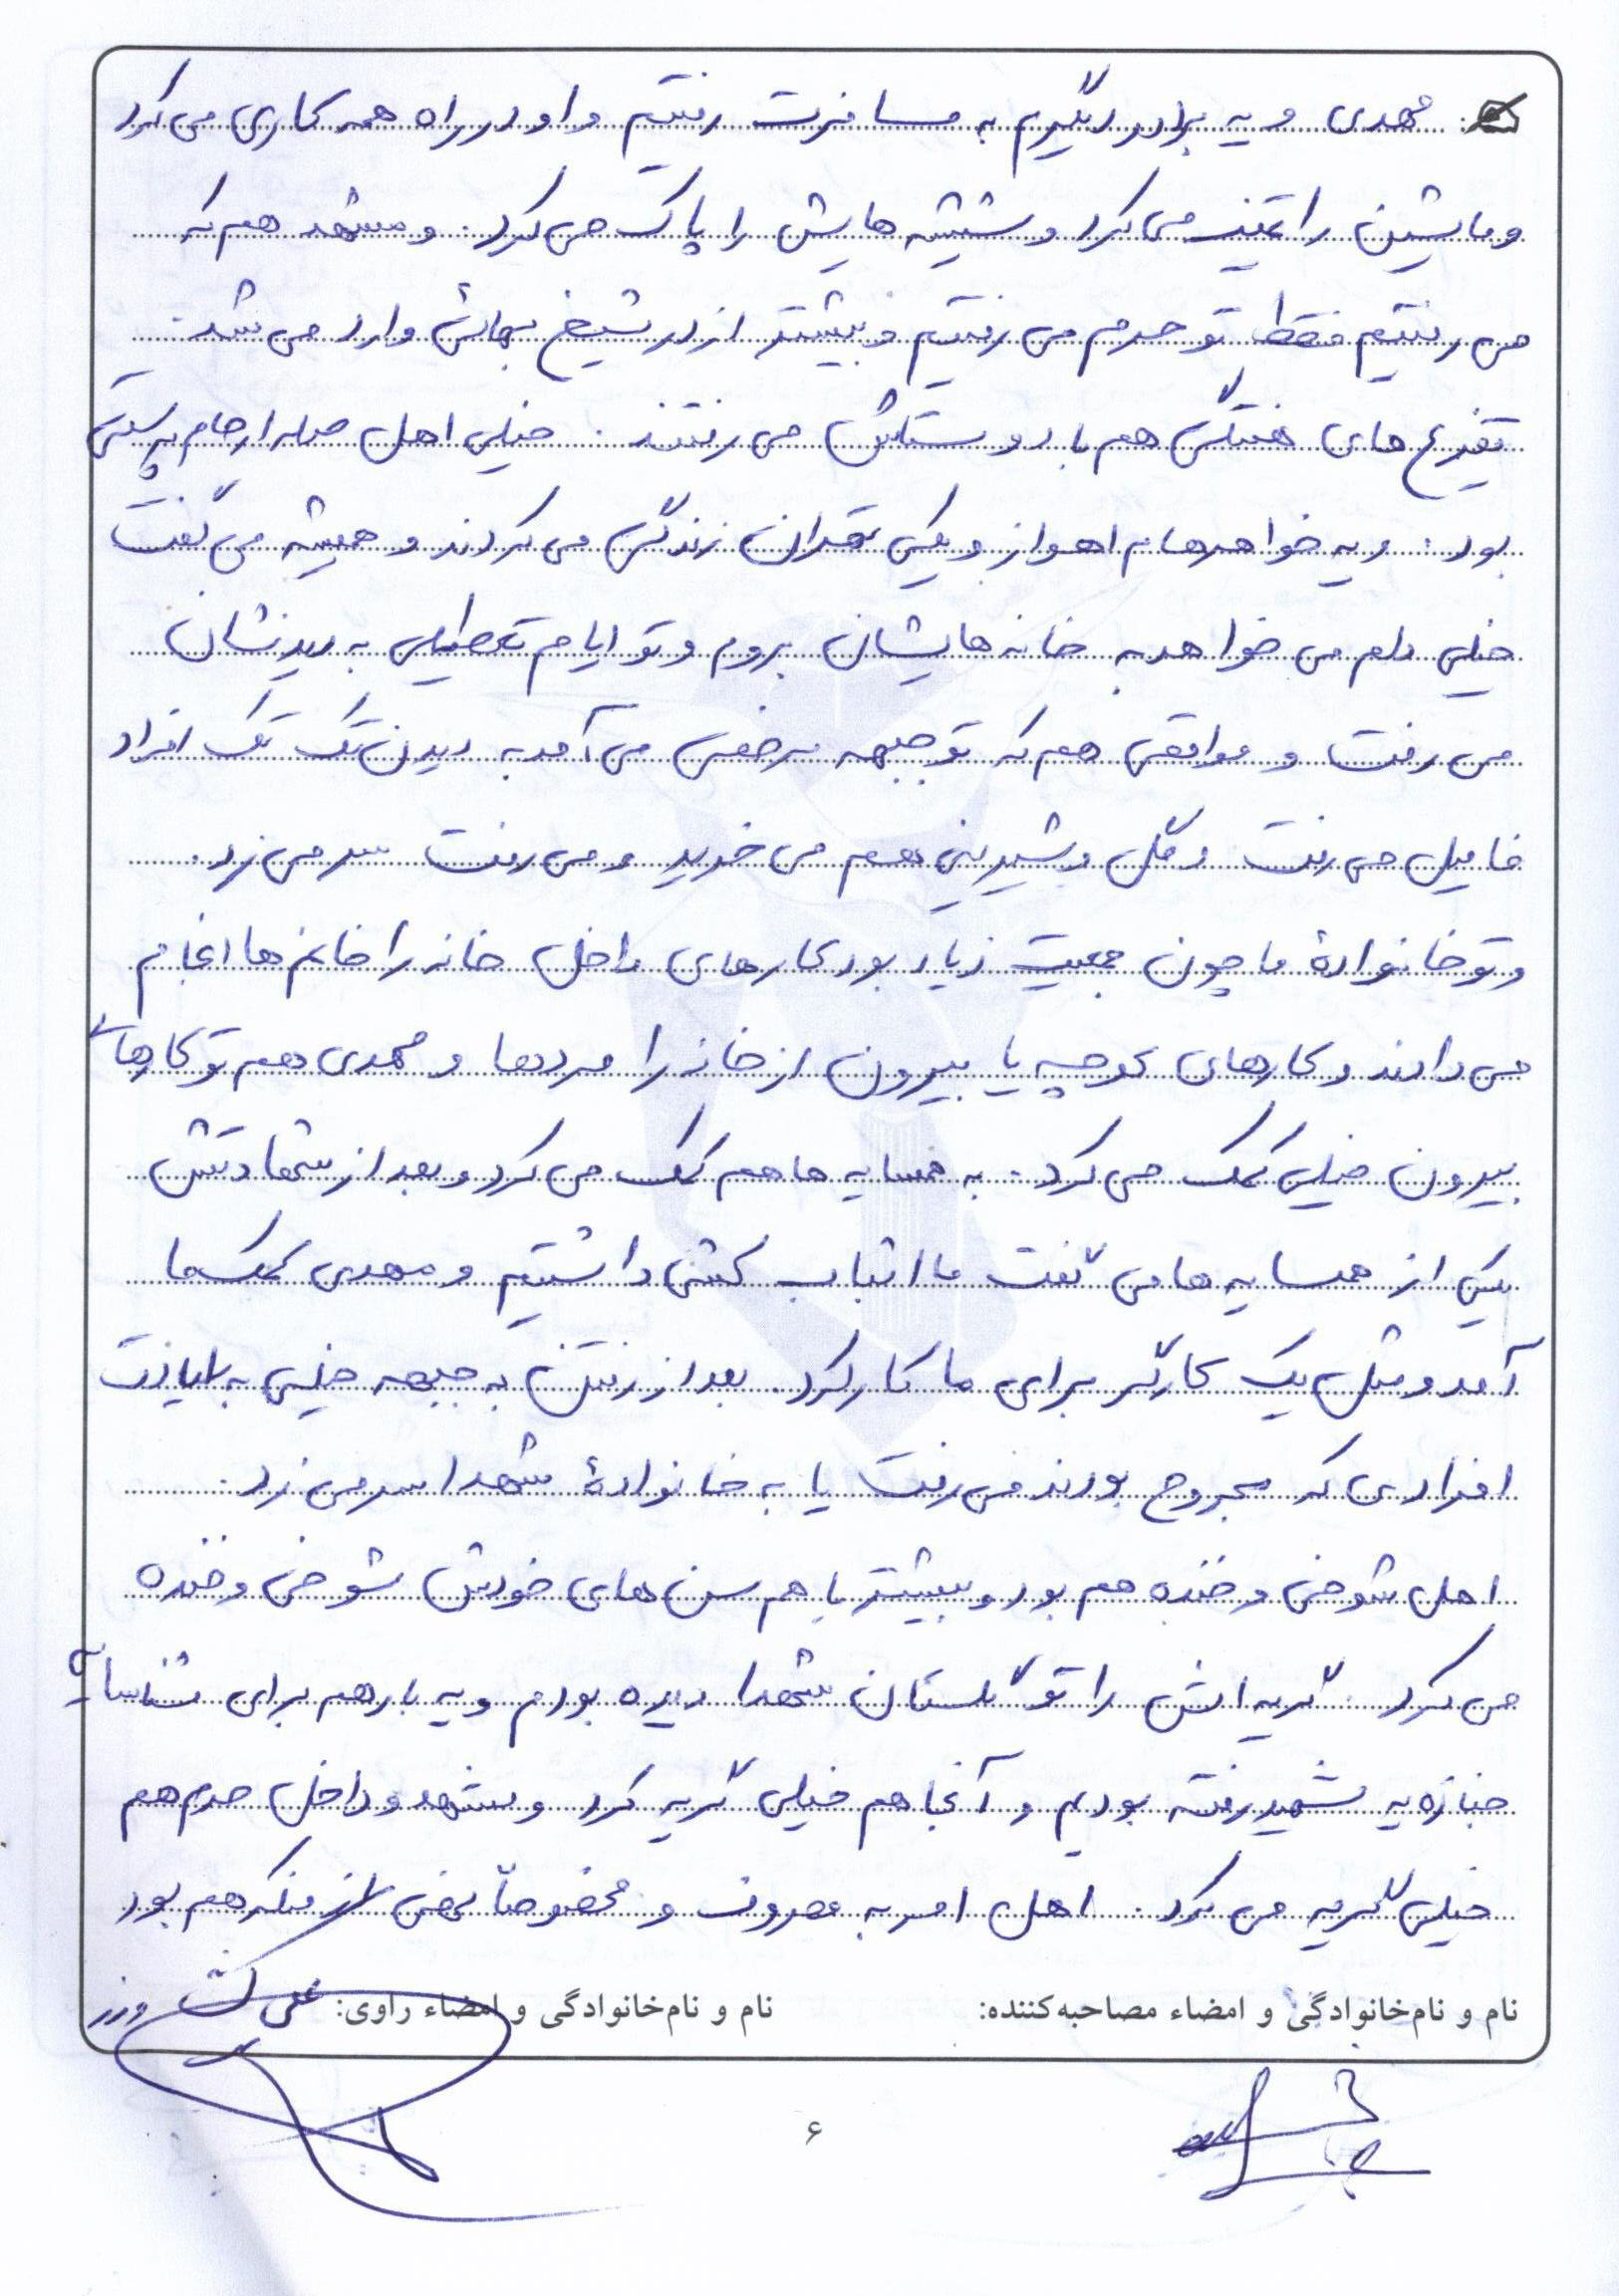 مهدی و یه برادر دیگرم به مسافرت رفتیم و او در راه همه کاری می‌کرد
و ماشین را تمیز می‌کرد و شیشه‌هایش را پاک می‌کرد. و مشهد هم که
می‌رفتیم فقط تو حرم می‌رفتیم و بیشتر از در شیخ بهائی وارد می‌شد.
تفریح‌های هفتگی هم با دوستانش می‌رفتند. خیلی اهل صله ارحام
بود. و یه خواهرهام اهواز و یکی تهران زندگی می‌کردند و همیشه می‌گفت
خیلی دلم می‌خواهد به خانه‌هایشان بروم و تو ایام تعطیلی به دیدنشان
می‌رفت و مواقعی هم که تو جبهه مرخصی می‌آمد به دیدن تک تک افراد
فامیل می‌رفت و گل و شیرینی هم می‌خرید و می‌رفت سر می‌زد.
و تو خانوادهٔ ما چون جمعیت زیاد بود کارهای داخل خانه را خانم‌ها انجام
می‌دادند و کارهای کوچه یا بیرون از خانه را مردها و مهدی هم تو کارهای
بیرون خیلی کمک می‌کرد. به همسایه‌ها هم کمک می‌کرد و بعد از شهادتش
یکی از همسایه‌ها می‌گفت ما اثباب کشی داشتیم و مهدی کمک ما
آمد و مثل یک کارگر برای ما کار کرد. بعد از رفتن به جبهه خیلی به
افرادی که مجروح بودند می‌رفت یا به خانوادهٔ شهدا سر می‌زد.
اهل شوخی و خنده هم بود و بیشتر با هم سن‌های خودش شوخی و خنده
می‌کرد. گریه‌اش را تو گلستان شهدا دیده بودم و یه بار هم برای شناسایی
جنازه یه شهید رفته بودیم و آنجا هم خیلی گریه کرد و مشهد و داخل حرم هم
خیلی گریه می‌کرد. اهل امر به معروف و مخصوصاً نهی از منکر هم بود
نام و نام‌خانوادگی و امضاء مصاحبه‌کننده: نام و نام‌خانوادگی و امضاء راوی: علی کشت ورز
۶